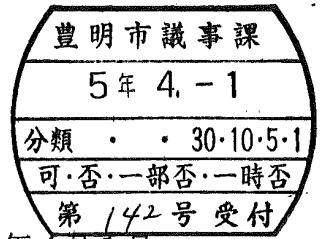 豊明市議事課
5年 4. - 1
分類 ・ ・ 30・10・5・1
可・否・一部否・一時否
第 142 号 受付